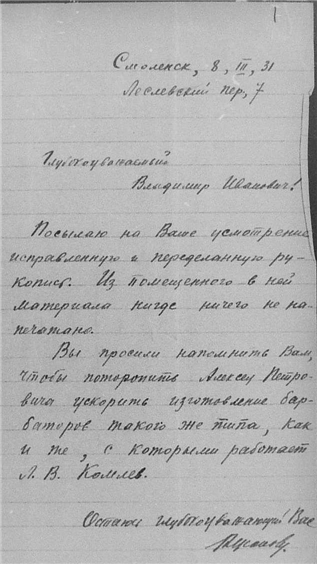 1
Смоленск, 8, III, 31
пер, 7
Глубокоуважаемый
Владимир Иванович!
Посылаю на Ваше усмотрение
исправленную и переделанную ру-
копись. Из помещенного в ней
материала нигде ничего не на-
печатано.
Вы просили напомнить Вам,
чтобы поторопить Алексея Петро-
вича ускорить изготовление бар-
баторов такого же типа, как
и те, с которыми работает
Л. В. Комлев.
Остаюсь глубокоуважающий Вас